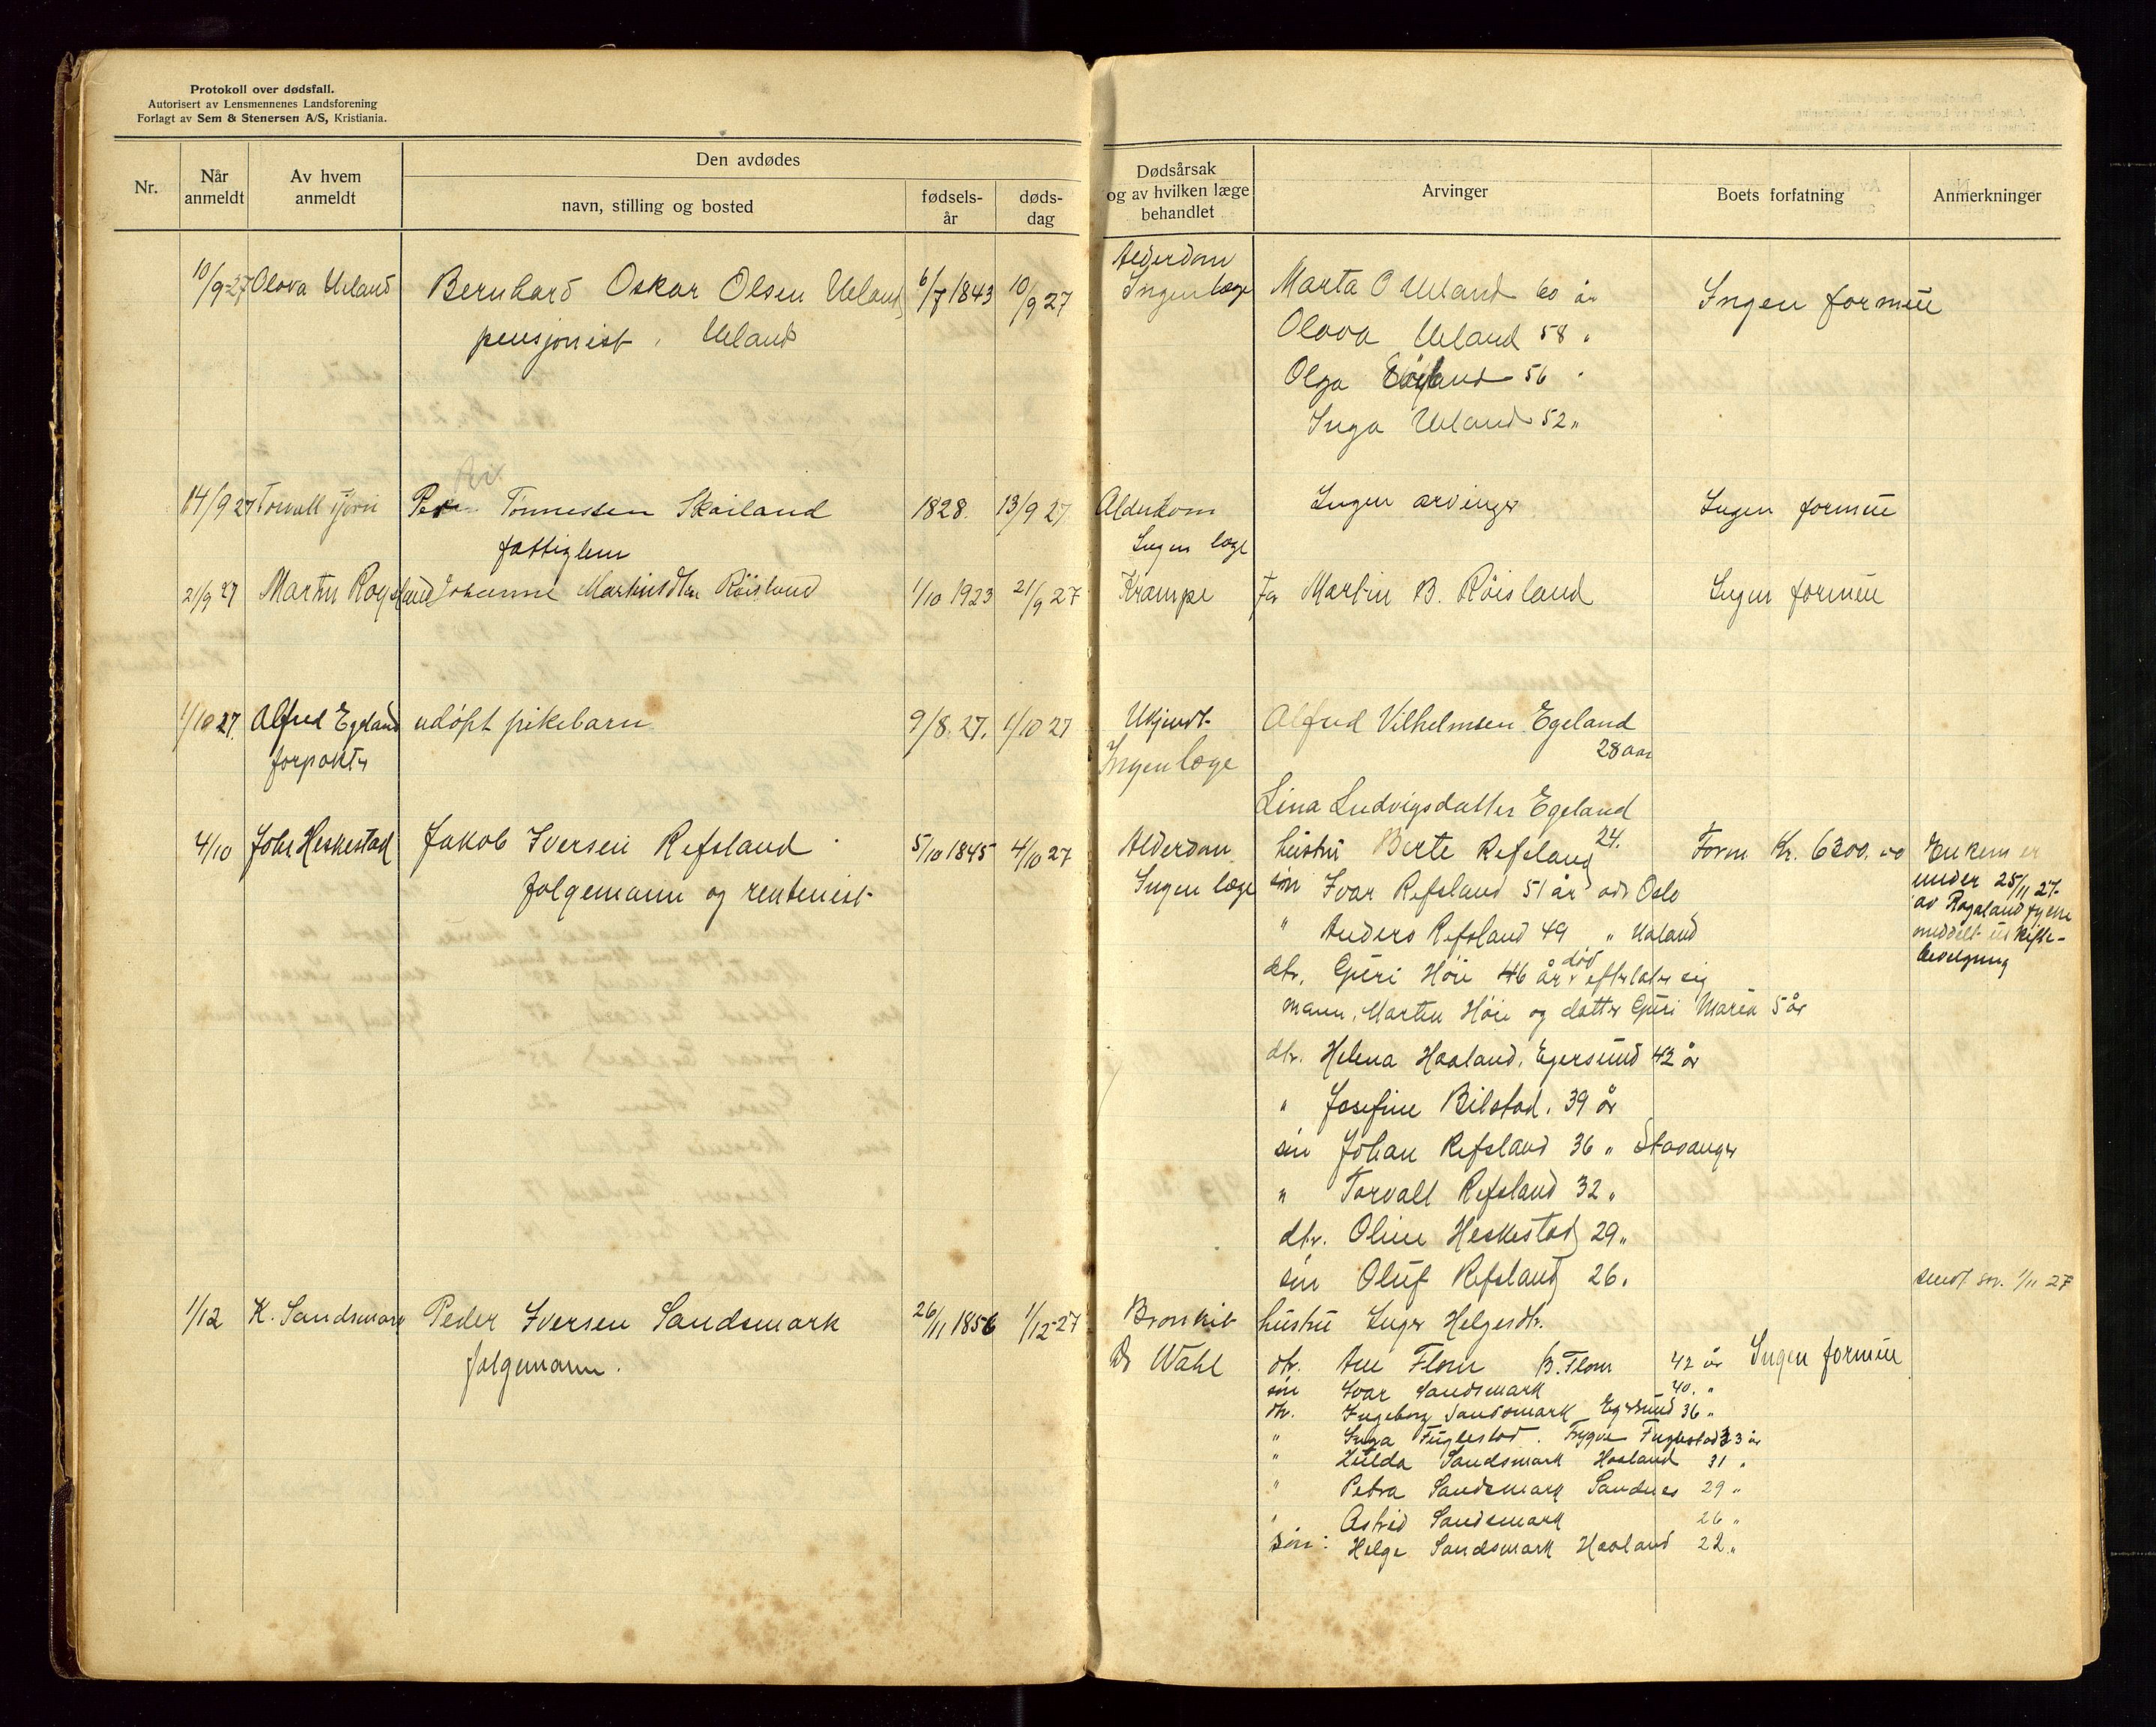 Protokoll over dødsfall.
Autorisert av Lensmennenes Landsforening
Forlagt av Sem & Stenersen A/S, Kristiania.
Nr.
Når anmeldt
Av hvem anmeldt
Den avdødes
navn, stilling og bosted
fødsels-år
døds-dag
Dødsårsak og av hvilken læge behandlet
Arvinger
Boets forfatning
Anmerkninger
10/9-27 Olava Ueland Bernhard Oskar Olsen Ueland 6/7 1843 10/9 27
pensjonist, Ueland
Alderdom
Ingen læge
Marta O Ueland 60 år
Ingen formue
Olava Ueland 58 "
Olga 56 "
Inga Ueland 52 "
14/9 27 Tønnessen Skailand 1828. 13/9 27
fattiglem
Alderdom
Ingen læge
Ingen arvinger
Ingen formue
21/9 27 Martin Johanne Martinsdtr Röisland 1/10 1923 21/9 27
Krampe
Far Martin B. Röisland
Ingen formue
1/10 27. Alfred Egeland udöpt pikebarn 9/8 27. 1/10 27
forpakter
Ukjendt
Ingen læge
Alfred Vilhelmsen Egeland
28 aar
Lina Ludvigsdatter Egeland
24.
4/10 Johs. Heskestad Jakob Iversen Refsland 5/10 1845 4/10 27
folgemann og rentenist
Alderdom
Ingen læge
hustru Berte Refsland
Form. Kr. 6300.00
Enken er
under 25/11 27
av Rogaland fylke
meddelt uskifte-
bevilgning
sön Ivar Refsland 51 år adr Oslo
" Anders Refsland 49 " Ualand
dtr. Guri Höie 46 år död efterlater sig
mann, Martin Höie og datter Guri Maria 5 år
dtr. Helena Haaland, Egersund 42 år
" Josefine Bilstad. 39 år
sön Johan Refsland 36 " Stavanger
" Torvall Refsland 32 "
dtr. Oline Heskestad 29 "
sön Oluf Refsland 26.
sendt 1/11 27
1/12 K. Sandsmark Peder Iversen Sandsmark 26/11 1856 1/12-27
folgemann.
Bronkit
Dr Wahl
hustru Inger Helgesdtr.
Ingen formue
dtr. Ane Flom B. Flom 42 år
sön Ivar Sandsmark 40. "
dtr. Ingeborg Sandsmark Egersund 36 "
" Inga Fuglestad. Trygve Fuglestad 33 år
" Hulda Sandsmark Haaland 31 "
" Petra Sandsmark Sandnes 29 "
" Astrid Sandsmark 26 "
sön: Helge Sandsmark Haaland 22 "